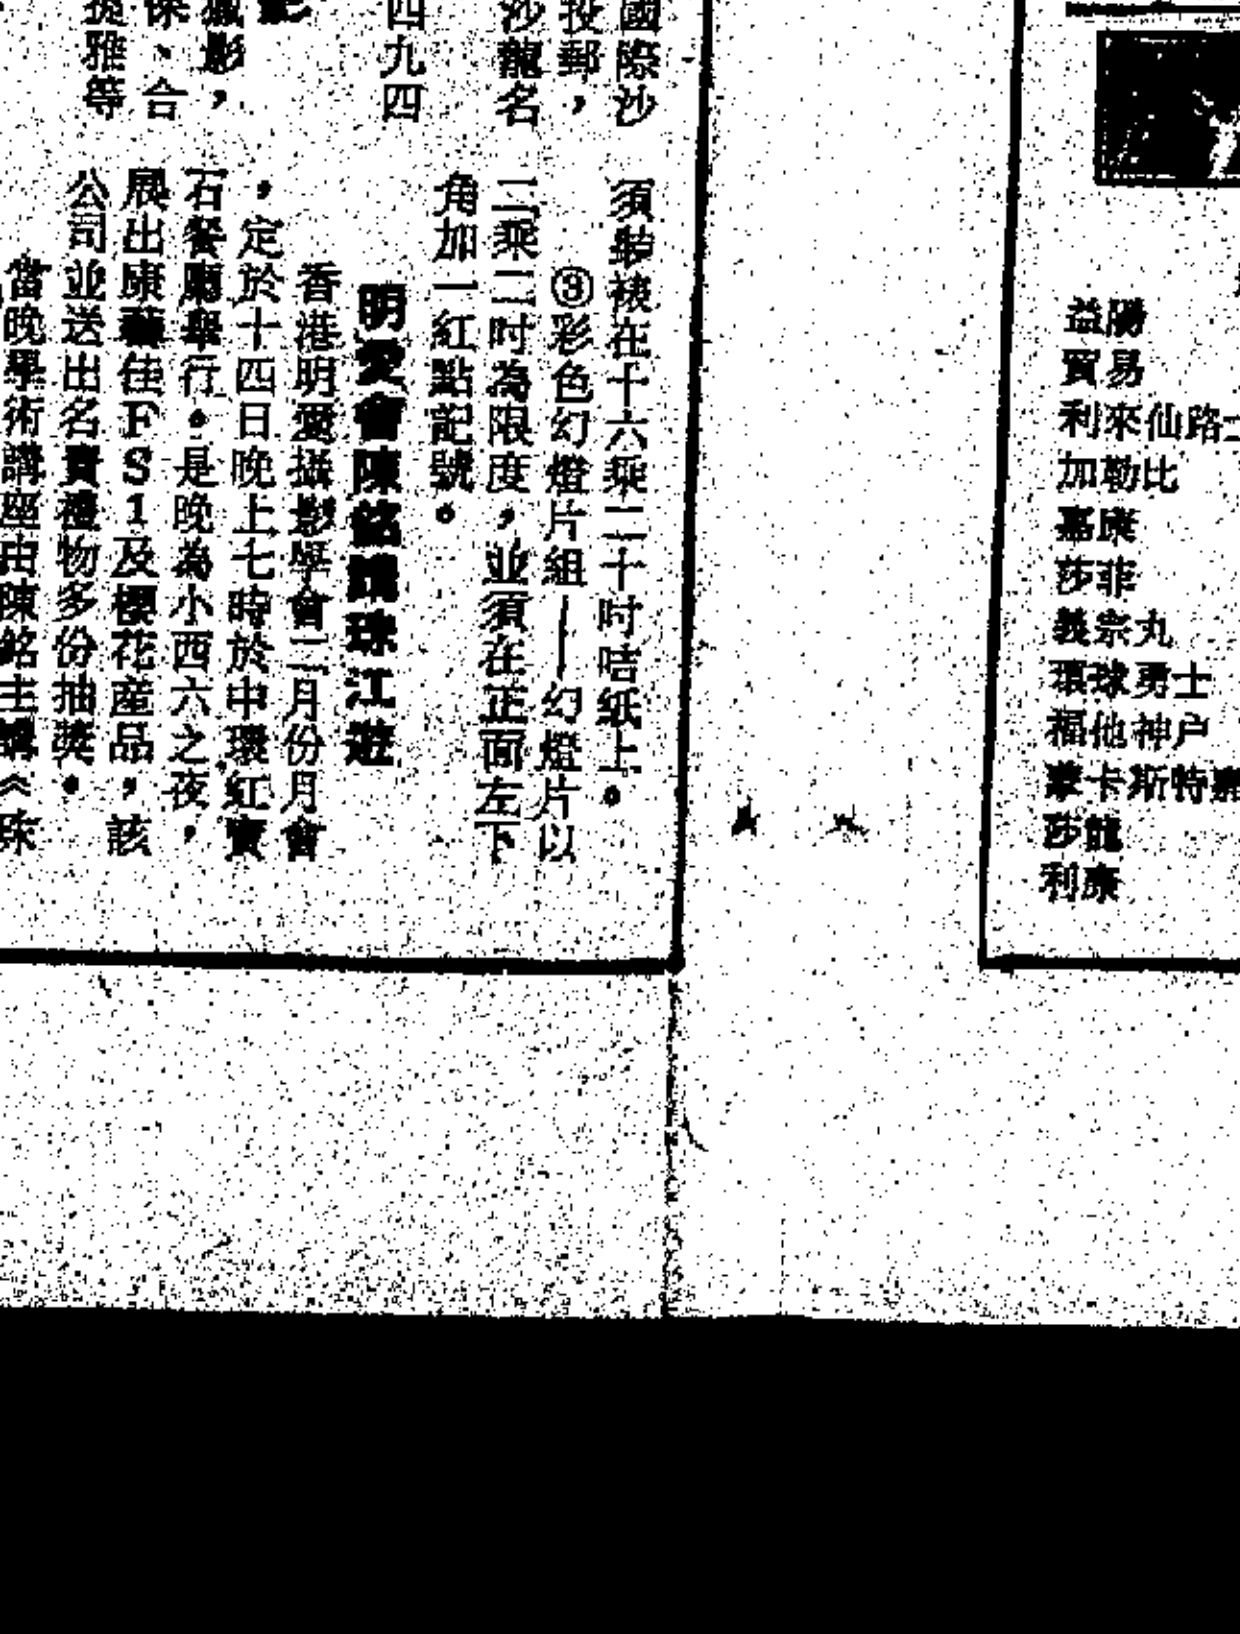 國際沙
投郵，
沙龍名
四九四
影，
、合
雅等
須裝裱在十六乘二十吋咭紙上。
③彩色幻燈片組——幻燈片以
二乘二吋為限度，並須在正面左下
角加一紅點記號。
明愛會陳銘講珠江遊
香港明愛攝影學會三月份月會
，定於十四日晚上七時於中環紅寶
石餐廳舉行。是晚為小西六之夜，
展出康藝佳FS1及櫻花産品，該
公司並送出名貴禮物多份抽獎。
當晚學術講座由陳銘主講《珠
益勝
貿易
利來仙路士
加勒比
嘉康
莎菲
義宗丸
環球勇士
福他神户
蒙卡斯特嘉
莎龍
利康